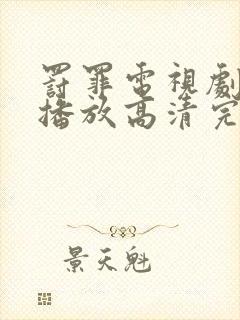 罸罪電視劇
播放高清完
景天魁